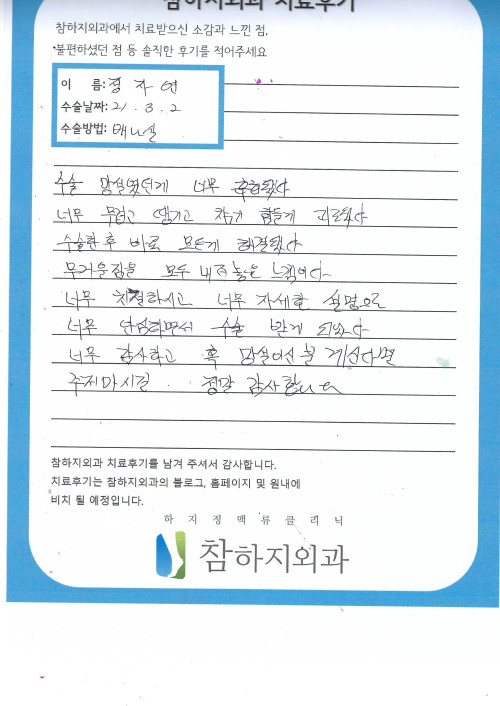 참하지외과 치료후기
참하지외과에서 치료받으신 소감과 느낀 점,
불편하셨던 점 등 솔직한 후기를 적어주세요
이 름: 정 자 연
수술날짜: 21. 3. 2
수술방법: 베나실
수술 망설였던게 너무 후회됐다
너무 무겁고 땡기고 차갑 힘들게 괴로웠다
수술한 후 바로 모든게 해결됐다
무거운짐을 모두 내려 놓은 느낌이다
너무 친절하시고 너무 자세한 설명으로
너무 안심하면서 수술 받게 되었다
너무 감사하고 혹 망설이신 분 계신다면
주저마시길 정말 감사합니다
참하지외과 치료후기를 남겨 주셔서 감사합니다.
치료후기는 참하지외과의 블로그, 홈페이지 및 원내에
비치 될 예정입니다.
하지정맥류클리닉
참하지외과